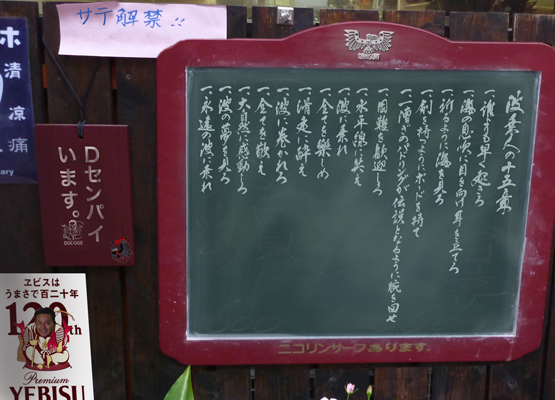 サテ解禁!!
ホ
清涼痛
ary
Dセンパイ
います。
波乗人の十五条
一、誰より早く起きろ
一、海の息吹に目を向け耳を立てろ
一、祈るように海を見ろ
一、剣を持つようにボードを持て
一、一漕ぎのパドリングが伝説となるように腕を回せ
一、困難を歓迎しろ
一、水平線に笑え
一、波に乗れ
一、全てを楽しめ
一、滑走に酔え
一、波に巻かれろ
一、全てを敬え
一、大自然に感動しろ
一、波の夢を見ろ
一、永遠の波に乗れ
ニコリンサーフあります。
ヱビスは
うまさで百二十年
120th
Premium
YEBISU